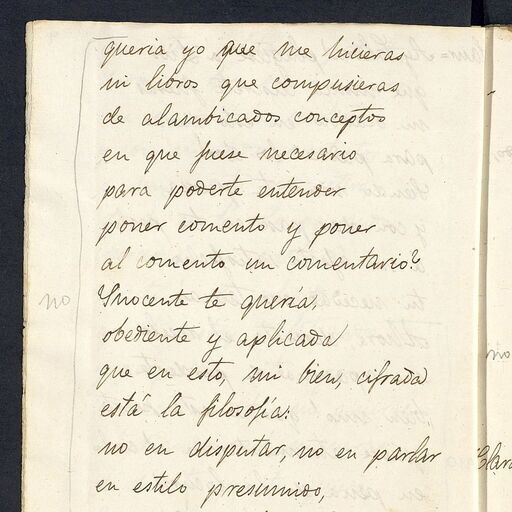 queria yo que me hicieras
ni libros que compusieras
de alambicados conceptos
en que fuese necesario
para poderte entender
poner comento y poner
al comento un comentario?
no
Ynocente te quería,
obediente y aplicada
que en esto, mi bien, cifrada
está la filosofía:
no en disputar, no en parlar
en estilo presumido,